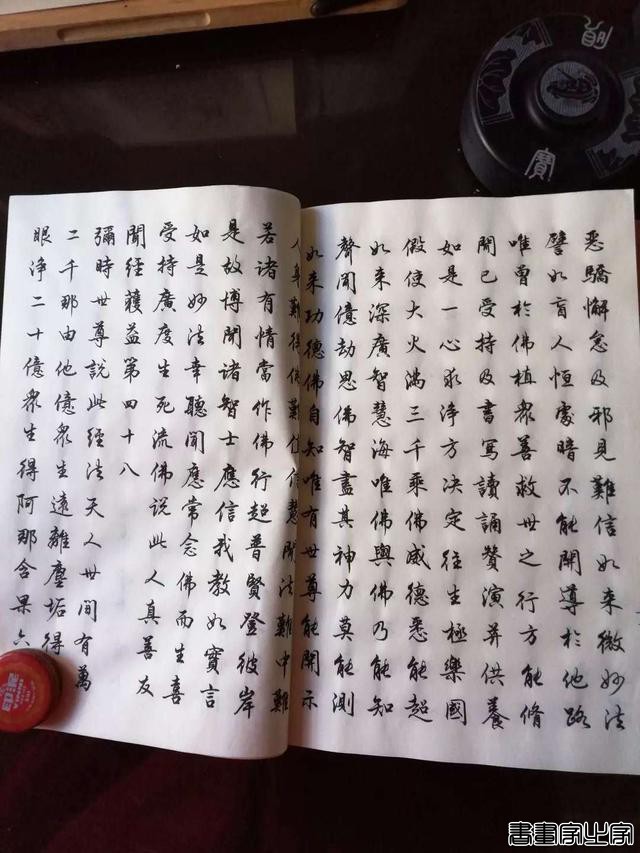 惡驕懈怠及邪見難信如來微妙法
譬如盲人恒處暗不能開導於他路
唯曾於佛植眾善救世之行方能脩
聞已受持及書寫讀誦贊演并供養
如是一心求淨方決定往生極樂國
假使大火滿三千乘佛威德悉能超
如來深廣智慧海唯佛與佛乃能知
聲聞億劫思佛智盡其神力莫能測
如來功德佛自知唯有世尊能開示
人身難得佛難值信慧聞法難中難
若諸有情當作佛行超普賢登彼岸
是故博聞諸智士應信我教如實言
如是妙法幸聽聞應常念佛而生喜
受持廣度生死流佛說此人真善友
聞經獲益第四十八
彌時世尊說此經法天人世間有萬
二千那由他億眾生遠離塵垢得
眼淨二十億眾生得阿那含果六
寶
印泥